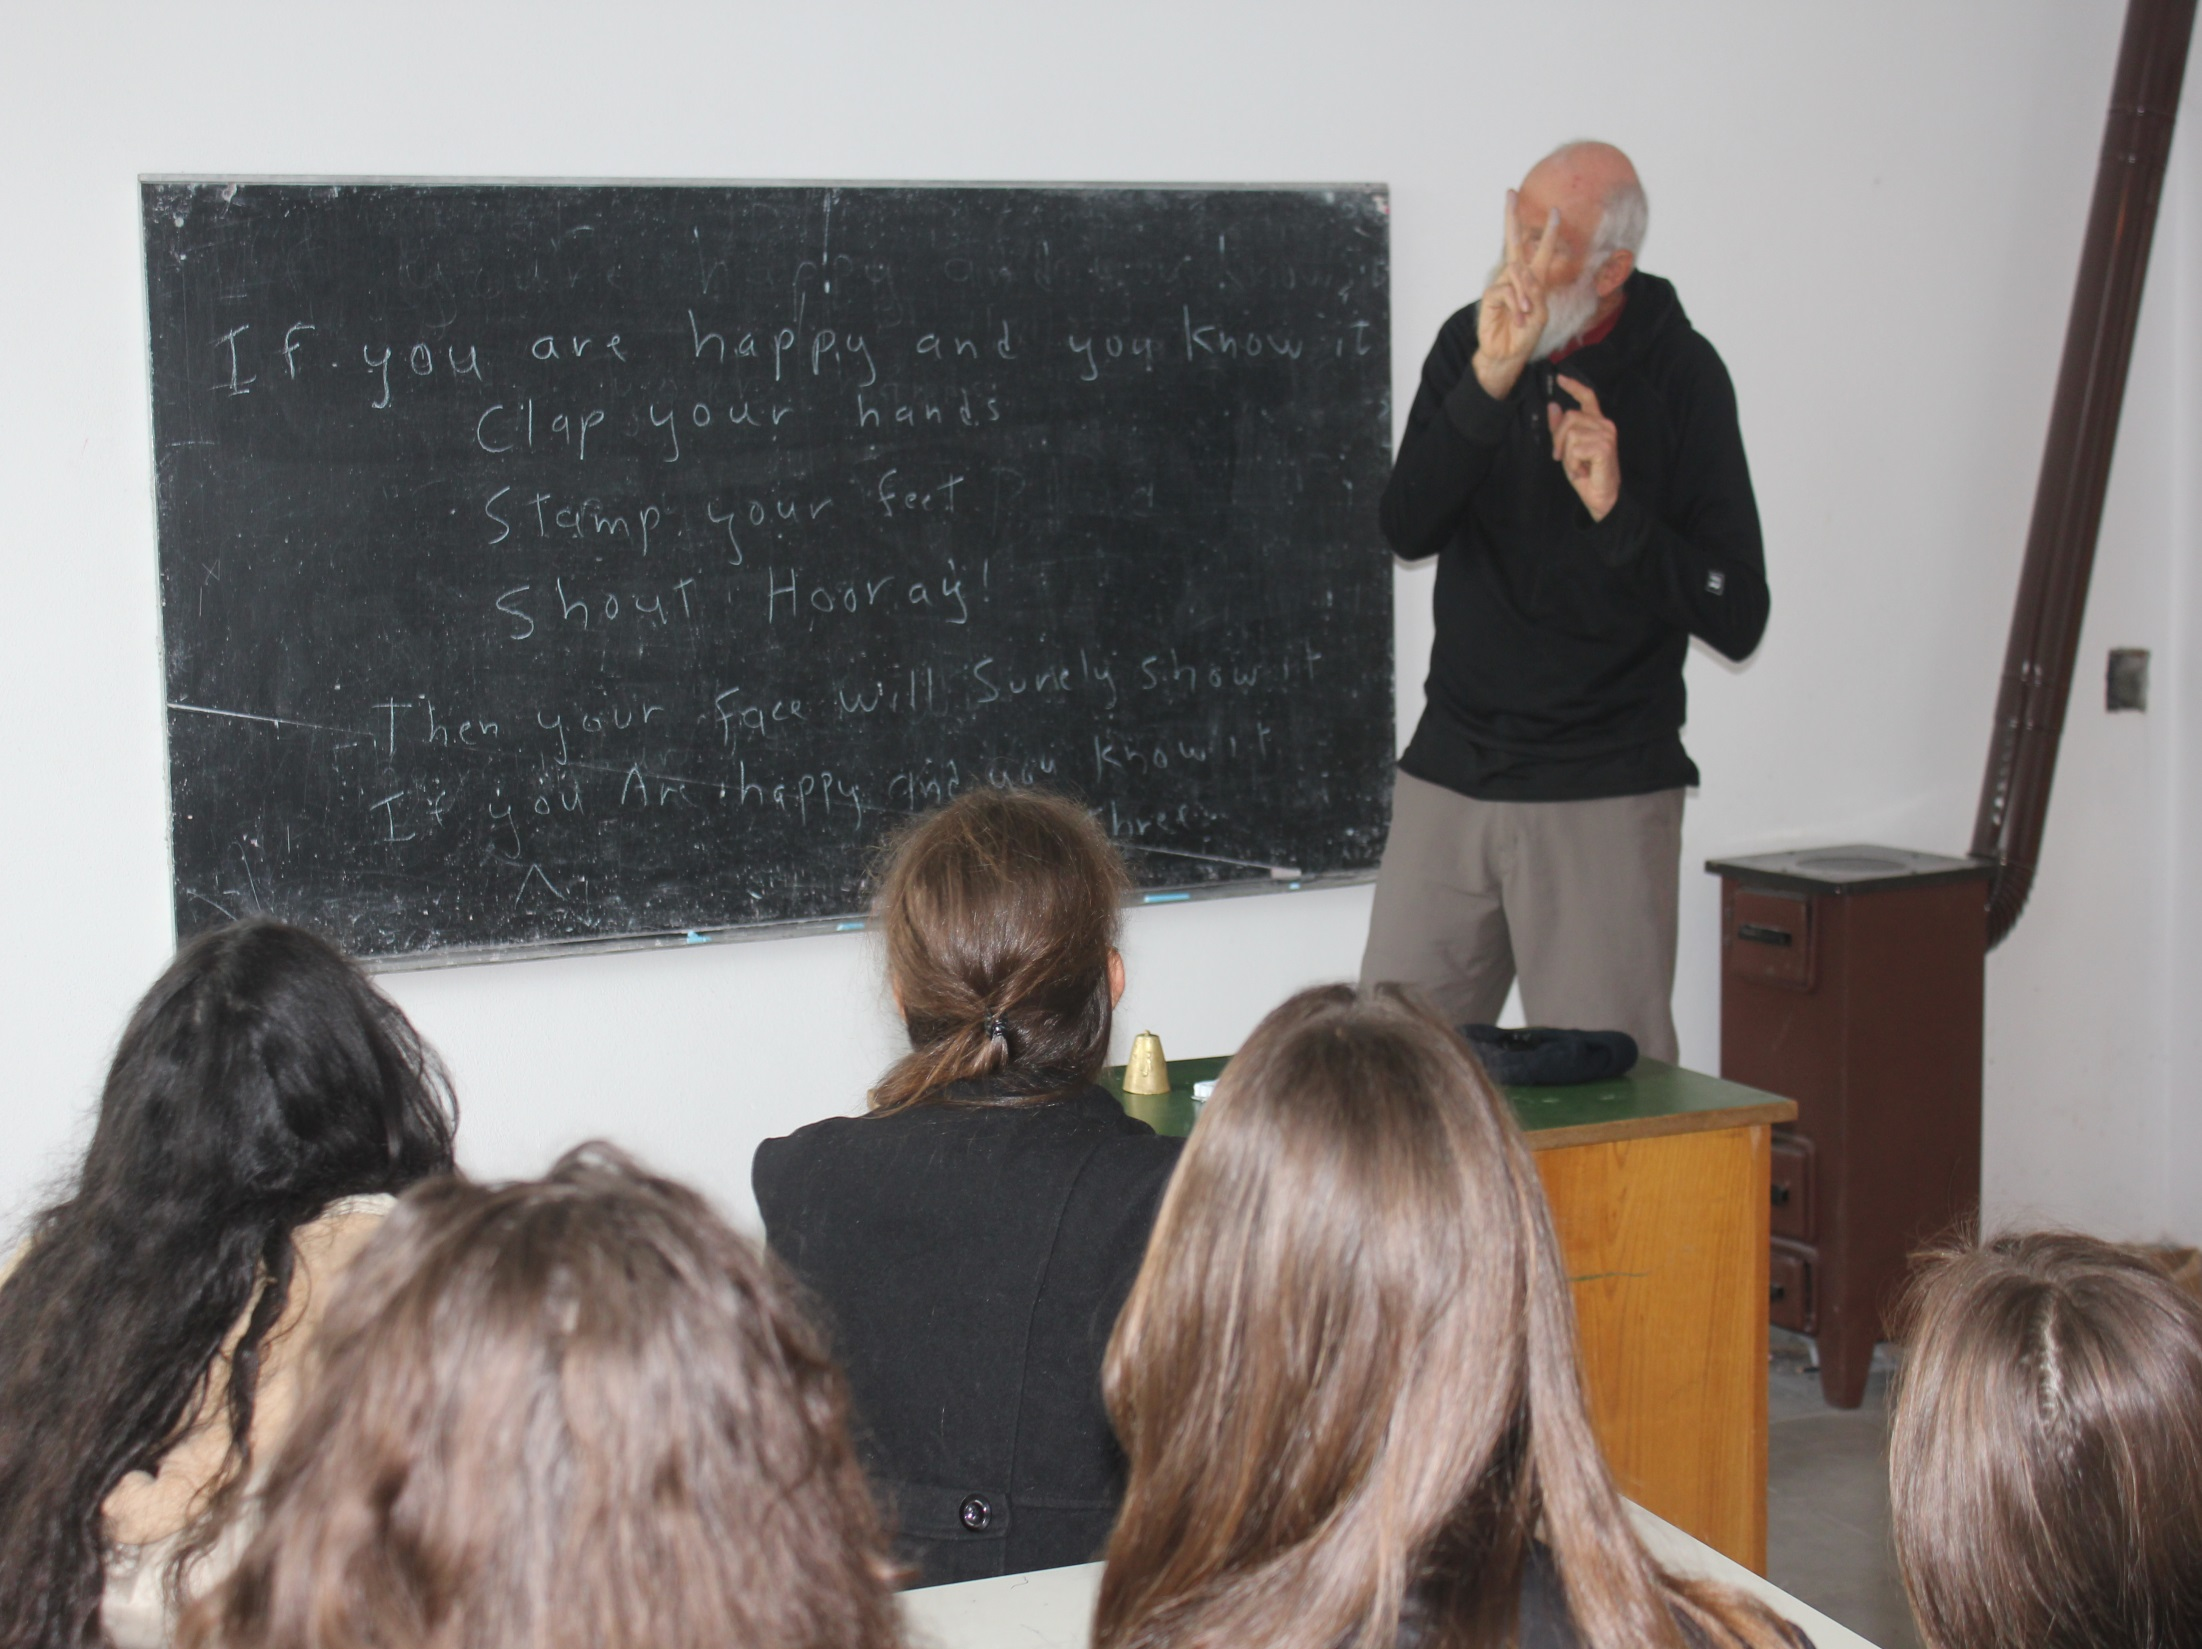 you're happy and you know it
If you are happy and you know it
Clap your hands
Stamp your feet
Shout Hooray!
Then your face will Surely show it
If you Are happy and you know it
three